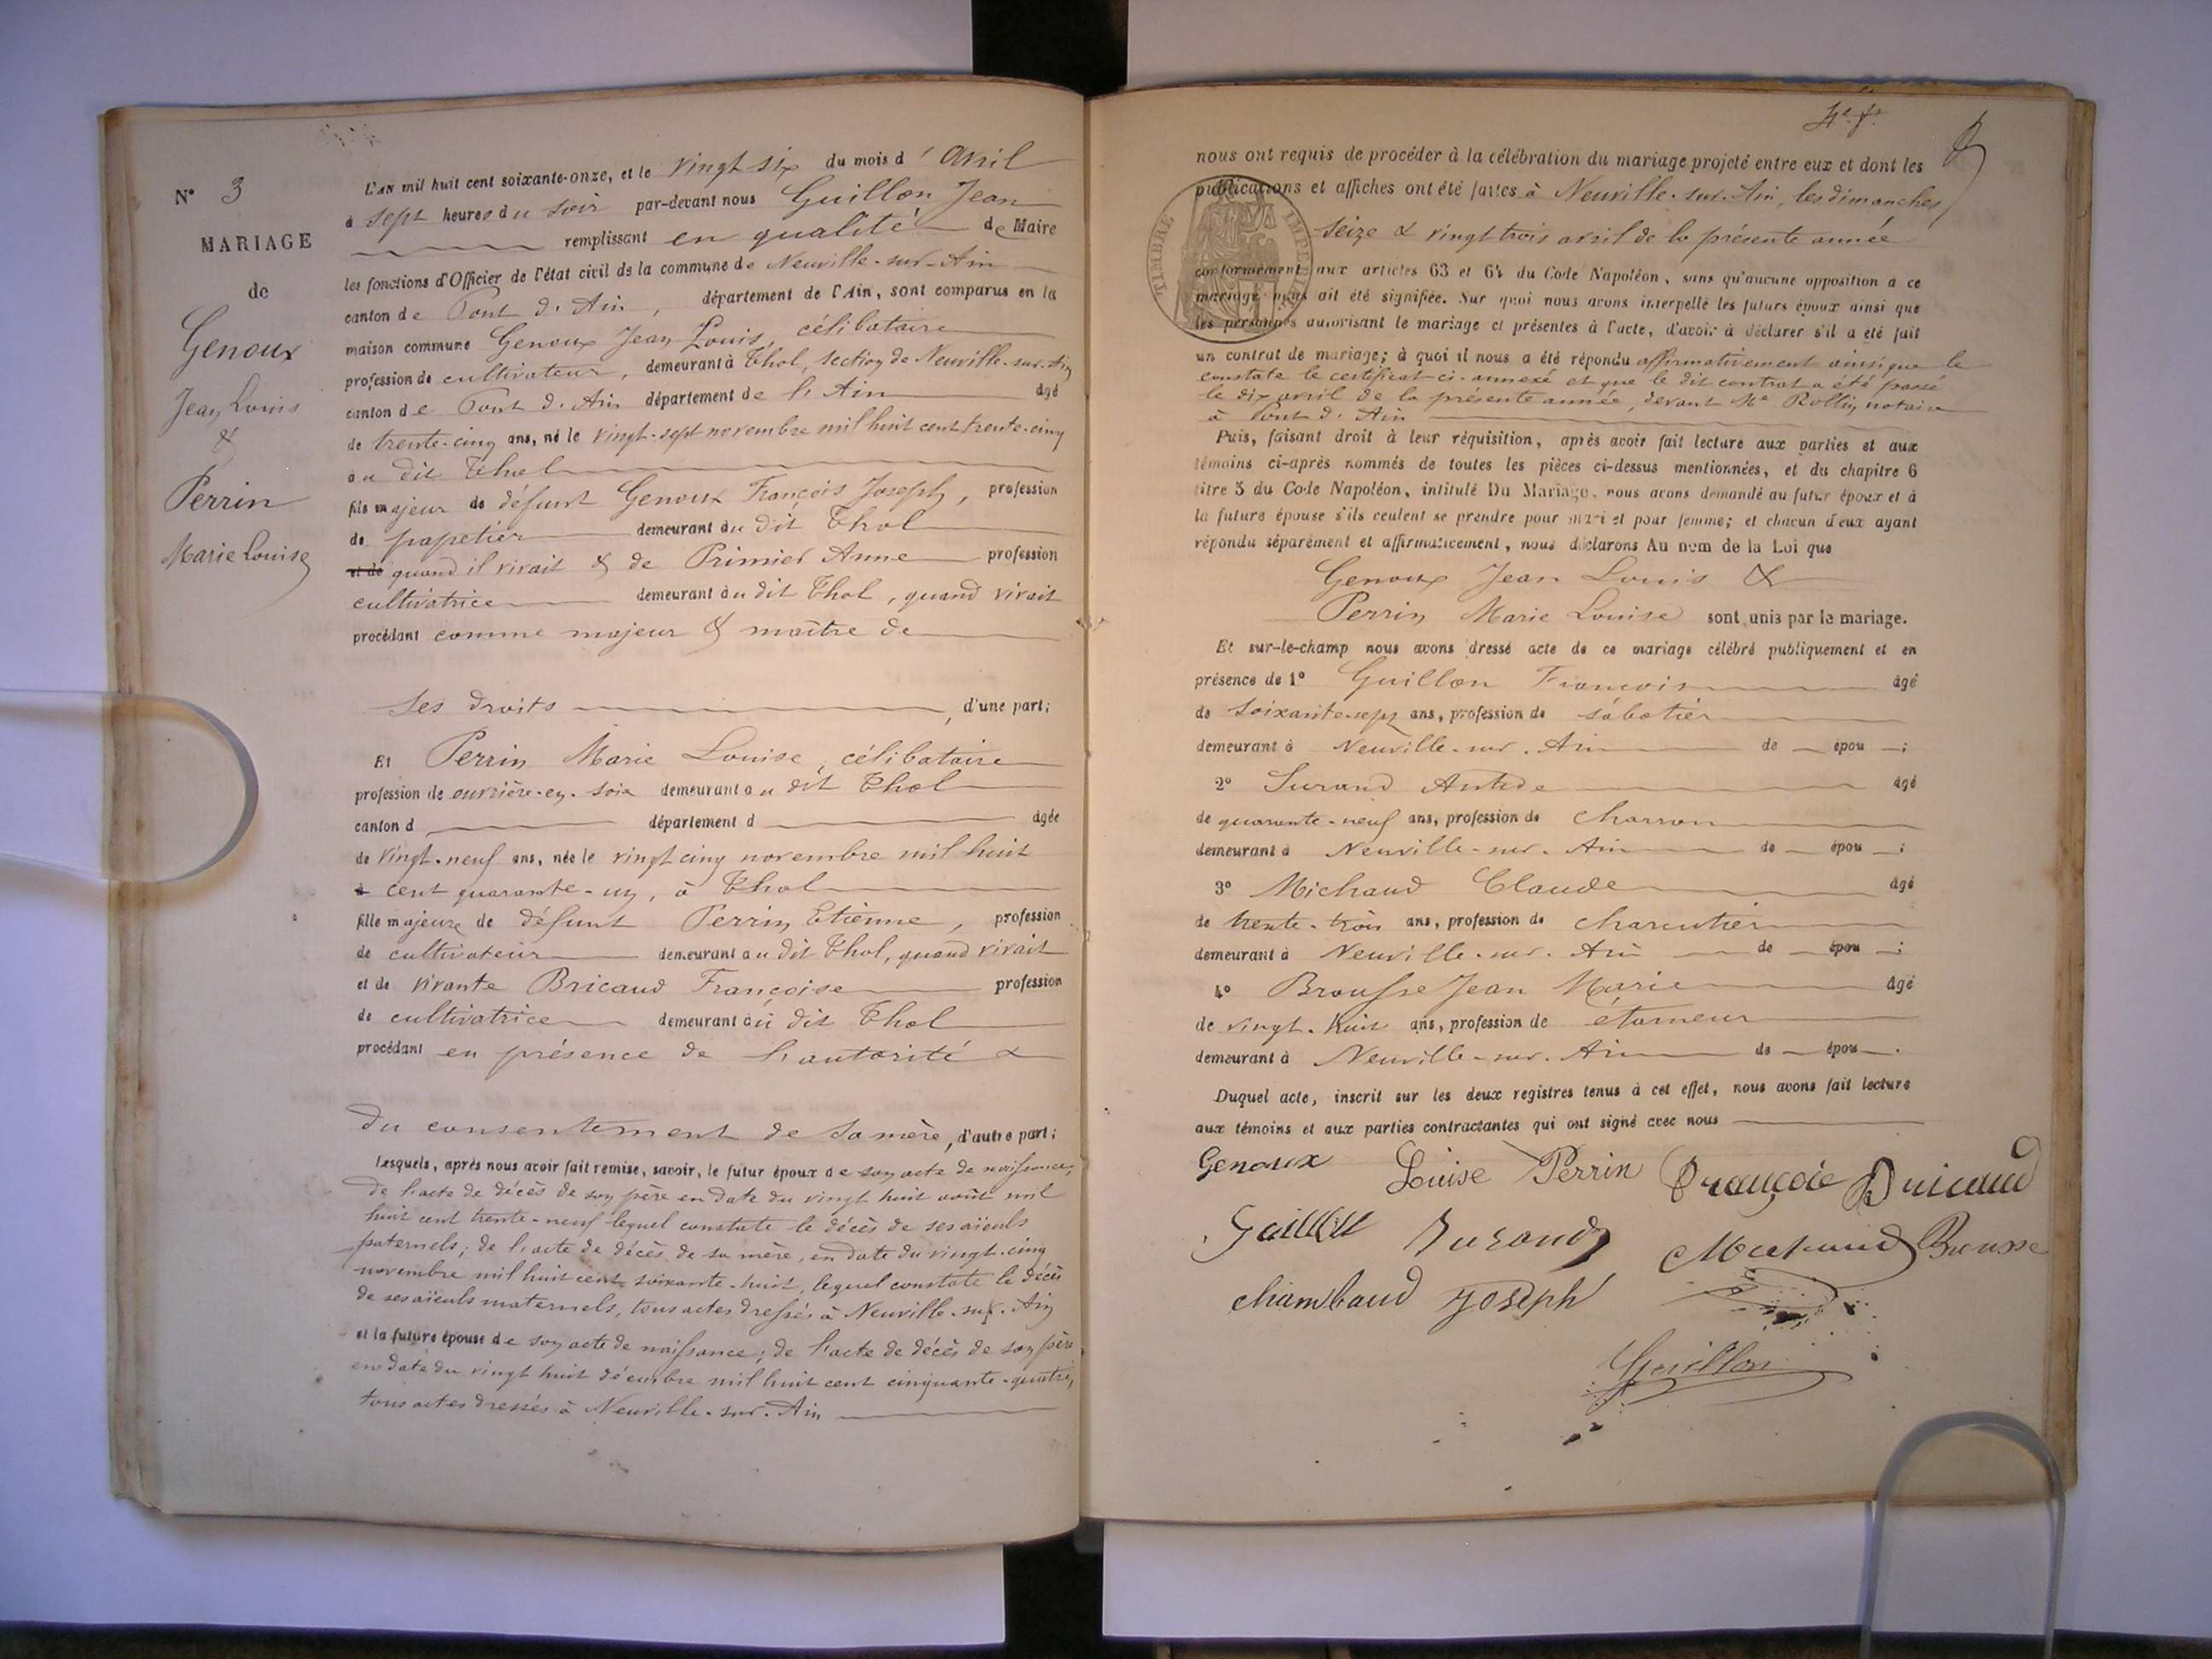 N° 3
MARIAGE
de
Genoux
Jean Louis
&
Perrin
Marie Louise
L'AN mil huit cent soixante-onze, et le vingt six du mois d'avril
à sept heures du soir par-devant nous Guillon Jean
remplissant en qualité de Maire
les fonctions d'Officier de l'état civil de la commune de Neuville-sur-Ain
canton de Pont d'Ain, département de l'Ain, sont comparus en la
maison commune Genoux Jean Louis, célibataire
profession de cultivateur, demeurant à Thol, section de Neuville-sur-Ain
canton de Pont d'Ain département de l'Ain âgé
de trente-cinq ans, né le vingt-sept novembre mil huit cent trente-cinq
au dit Thol
fils majeur de défunt Genoux François Joseph, profession
de papetier demeurant au dit Thol
et de quand il vivait & de Primier Anne profession
cultivatrice demeurant au dit Thol, quand vivait
procédant comme majeur & maître de
ses droits, d'une part;
Et Perrin Marie Louise, célibataire
profession de ouvrière-en-soie demeurant au dit Thol
canton d département d âgée
de vingt-neuf ans, née le vingt cinq novembre mil huit
à cent quarante-un, à Thol
fille majeure de défunt Perrin Etienne, profession
de cultivateur demeurant au dit Thol, quand vivait
et de vivante Bricaud Françoise profession
de cultivatrice demeurant au dit Thol
procédant en présence de l'autorité &
du consentement de sa mère, d'autre part;
lesquels, après nous avoir fait remise, savoir, le futur époux de son acte de naissance,
de l'acte de décès de son père en date du vingt huit août mil
huit cent trente-neuf lequel constate le décès de ses aïeuls
paternels; de l'acte de décès de sa mère, en date du vingt-cinq
novembre mil huit cent soixante-huit, lequel constate le décès
de ses aïeuls maternels, tous actes dressés à Neuville-sur-Ain
et la future épouse de son acte de naissance; de l'acte de décès de son père
en date du vingt huit décembre mil huit cent cinquante-quatre,
tous actes dressés à Neuville-sur-Ain
nous ont requis de procéder à la célébration du mariage projeté entre eux et dont les
publications et affiches ont été faites à Neuville-sur-Ain, les dimanches
seize & vingt trois avril de la présente année
TIMBRE IMPERIAL
conformément aux articles 63 et 64 du Code Napoléon, sans qu'aucune opposition a ce
mariage nous ait été signifiée. Sur quoi nous avons interpellé les futurs époux ainsi que
les personnes autorisant le mariage et présentes à l'acte, d'avoir à déclarer s'il a été fait
un contrat de mariage; à quoi il nous a été répondu affirmativement ainsi que le
constate le certificat ci-annexé et que le dit contrat a été passé
le dix avril de la présente année, devant Me Rollin notaire
à Pont d'Ain
Puis, faisant droit à leur réquisition, après avoir fait lecture aux parties et aux
témoins ci-après nommés de toutes les pièces ci-dessus mentionnées, et du chapitre 6
titre 5 du Code Napoléon, intitulé Du Mariage, nous avons demandé au futur époux et à
la future épouse s'ils veulent se prendre pour mari et pour femme; et chacun d'eux ayant
répondu séparément et affirmativement, nous déclarons Au nom de la Loi que
Genoux Jean Louis &
Perrin Marie Louise sont unis par le mariage.
Et sur-le-champ nous avons dressé acte de ce mariage célébré publiquement et en
présence de 1° Guillon François âgé
de soixante-sept ans, profession de sabotier
demeurant à Neuville-sur-Ain de épou ;
2° Durand Antide âgé
de quarante-neuf ans, profession de charron
demeurant à Neuville-sur-Ain de épou ;
3° Michaud Claude âgé
de trente-trois ans, profession de charcutier
demeurant à Neuville-sur-Ain de épou ;
4° Brousse Jean Marie âgé
de vingt-huit ans, profession de étameur
demeurant à Neuville-sur-Ain de épou .
Duquel acte, inscrit sur les deux registres tenus à cet effet, nous avons fait lecture
aux témoins et aux parties contractantes qui ont signé avec nous
Genoux Louise Perrin Françoise Bricaud
Durand Michaud Brousse
Chambaud Joseph
Guillon